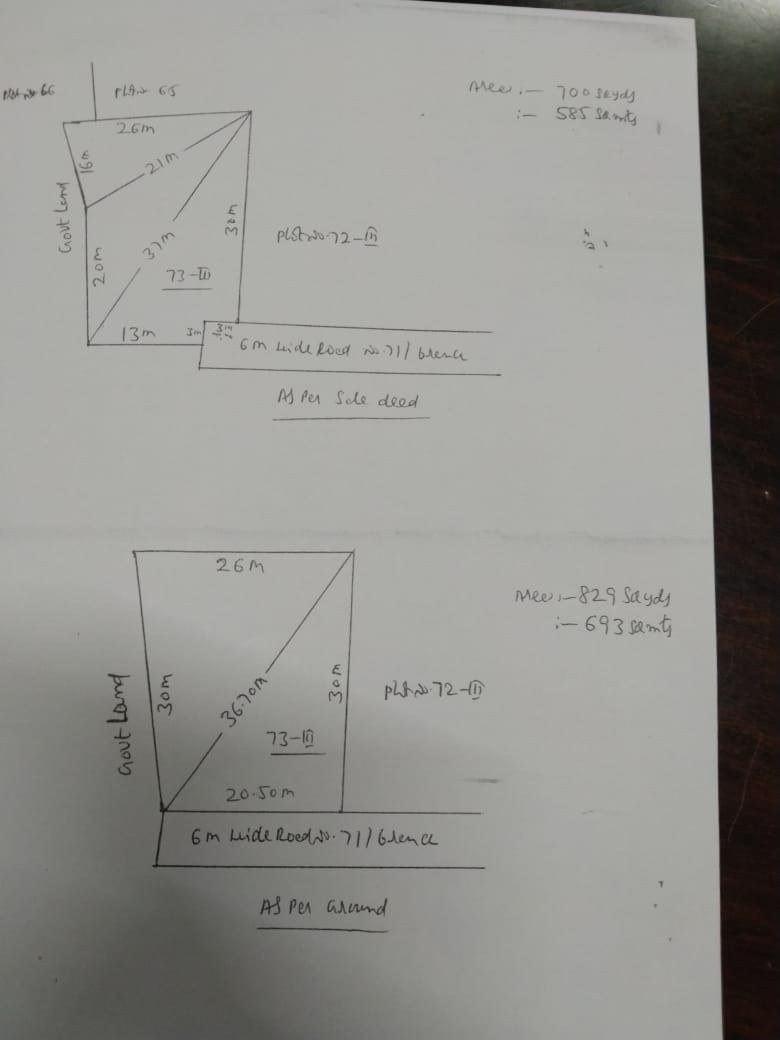 Plot No 66
Plot No 65
Area :- 700 Sqyds
:- 585 Sqmts
26m
16m
21m
Govt Land
37m
30m
Plot No. 72-III
20m
73-III
13m
3m
3m
6m wide Road No. 71/
As Per Sale deed
26m
Area :- 829 Sqyds
:- 693 Sqmts
Govt Land
30m
36.70m
30m
Plot No. 72-III
73-III
20.50m
6m wide Road No. 71/
As Per Ground